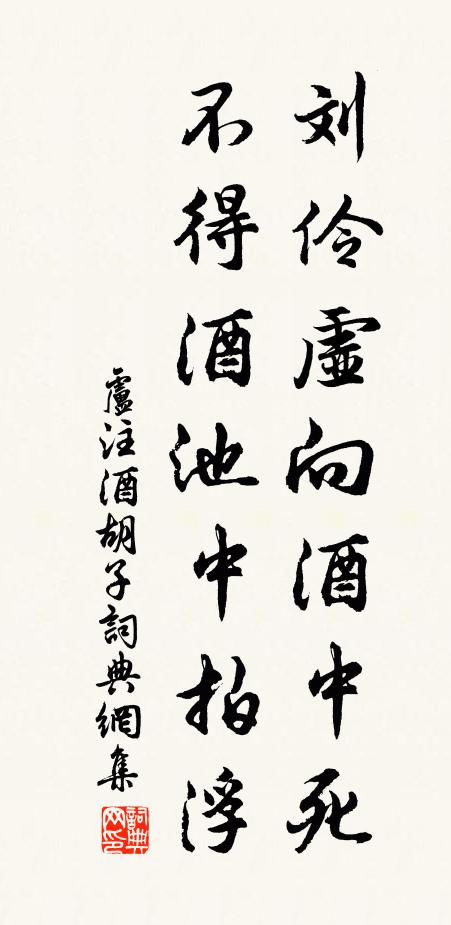 刘伶虛向酒中死
不得酒池中拍浮
盧注酒胡子詞典網集
詞典网印